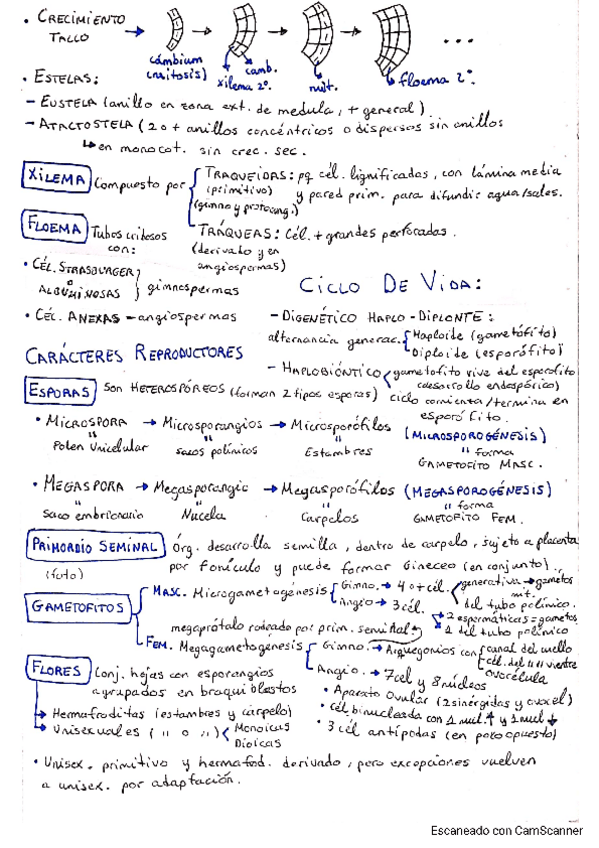 • CRECIMIENTO TALLO
cámbium (mitosis)
camb.
xilema 2º.
mit.
floema 2º.
...
• ESTELAS:
- EUSTELA (anillo en zona ext. de medula, + general)
- ATACTOSTELA (2 o + anillos concéntricos o dispersos sin anillos
↳ en monocot. sin crec. sec.
XILEMA Compuesto por
TRAQUEIDAS: pq cél. lignificadas, con lámina media
(primitivo) y pared prim. para difundir agua/sales.
(gimno y protoang.)
FLOEMA Tubos cribosos con:
TRÁQUEAS: Cél. + grandes perforadas.
(derivado y en angiospermas)
• CÉL. STRASBURGER o ALBUMINOSAS } gimnospermas
• CÉL. ANEXAS - angiospermas
CICLO DE VIDA:
- DIGENÉTICO HAPLO-DIPLONTE:
alternancia generac. Haploide (gametófito)
Diploide (esporófito)
- HAPLOBIÓNTICO gametofito vive del esporofito
(desarrollo endospórico)
ciclo comienta/termina en
esporófito.
CARÁCTERES REPRODUCTORES
ESPORAS son HETEROSPÓREOS (forman 2 tipos esporas)
• MICROSPORA → Microsporangios → Microsporófilos (MICROSPOROGÉNESIS)
" " " " forma
Polen Unicelular sacos polínicos Estambres GAMETOFITO MASC.
• MEGASPORA → Megasporangio → Megasporófilos (MEGASPOROGÉNESIS)
" " " " forma
saco embrionario Nucela Carpelos GAMETOFITO FEM.
PRIMORDIO SEMINAL Órg. desarrolla semilla, dentro de carpelo, sujeto a placenta
(foto) por funículo y puede formar Gineceo (en conjunto).
GAMETOFITOS
MASC. Microgametogénesis Gimno. → 4 o + cél. generativa → gametos
mit.
del tubo polínico.
Angio → 3 cél. 2 espermáticas = gametos
1 del tubo polínico
megaprótalo rodeado por prim. seminal
FEM. Megagametogénesis Gimno. → Arquegonios con canal del cuello
cél. del " " vientre
ovocélula
Angio. → 7 cel y 8 núcleos
• Aparato Ovular (2 sinérgidas y ovocel)
• cél. binucleada con 1 nucl. ↑ y 1 nucl ↓
• 3 cél antípodas (en polo opuesto)
FLORES Conj. hojas con esporangios
agrupados en braquiblastos
→ Hermafroditas (estambres y carpelo)
→ Unisexuales ( " o " ) Monoicas
Dioicas
• Unisex. primitivo y hermafrod. derivado, pero excepciones vuelven
a unisex. por adaptación.
Escaneado con CamScanner